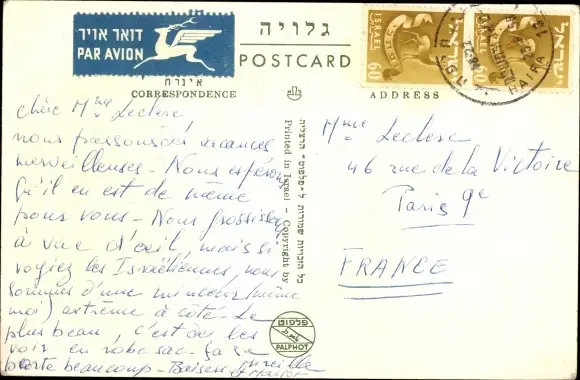 דואר אויר
PAR AVION
גלויה
POSTCARD
ISRAEL
ישראל
60
ISRAEL
ישראל
60
HAIFA
אגרת
CORRESPONDENCE
ADDRESS
chère Mme Leclerc,
nous passons des vacances
merveilleuses - Nous espérons
qu'il en est de même
pour vous - Nous grossissons
à vue d'œil, mais si
voyiez les Israéliennes, nous
sommes d'une minceur (même
moi) extrême à côté - Le
plus beau, c'est de les
voir en robe sac - ça se
porte beaucoup - Baisers Mireille
כל הזכויות שמורות ל"פלפוט" הרצליה
Printed in Israel - Copyright by
פלפוט
PALPHOT
Mme Leclerc
46 rue de la Victoire
Paris 9e
FRANCE